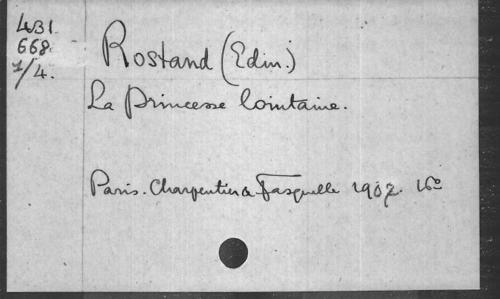 431.
668.
7/4.
Rostand (Edm.)
La Princesse lointaine.
Paris. Charpentier & Fasquelle 1907. 16°